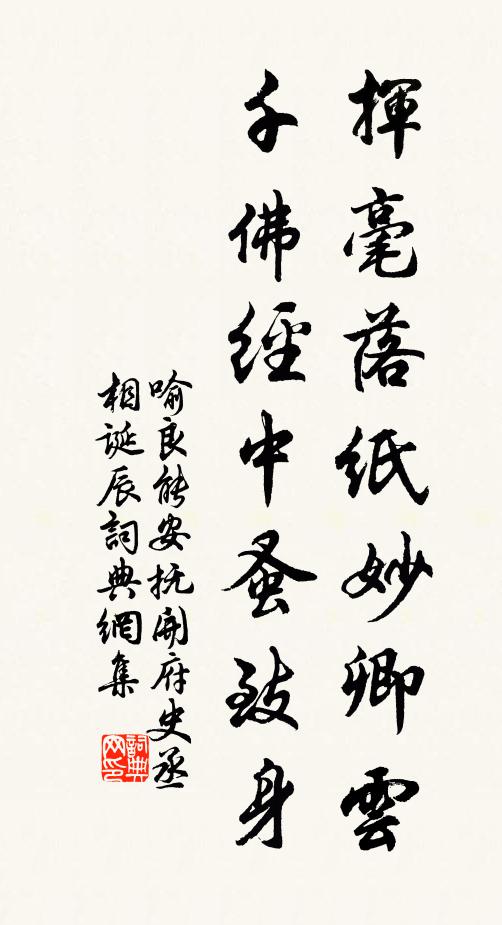 揮毫落紙妙卿雲
千佛經中蚤致身
喻良能安抚開府史丞
相誕辰詞典網集
詞典
网印